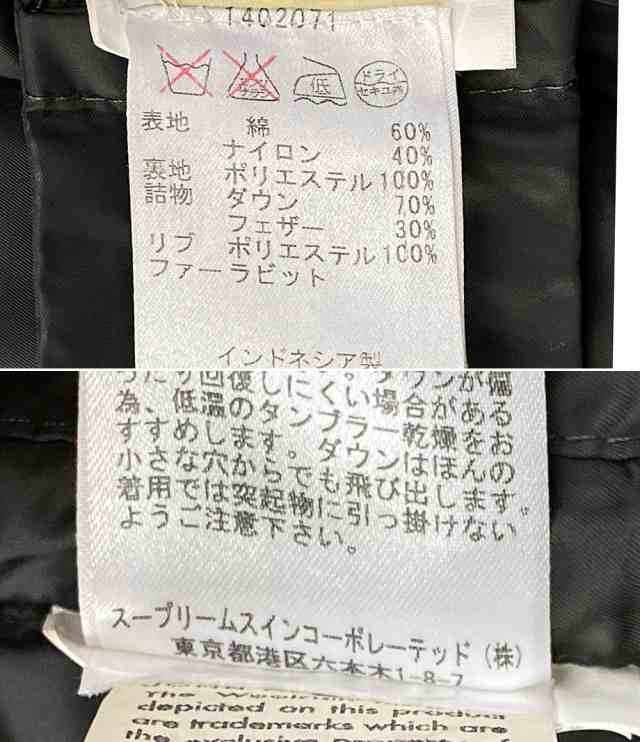 1402071
低
ドライ
セキユ系
表地 綿 60%
ナイロン 40%
裏地 ポリエステル100%
詰物 ダウン 70%
フェザー 30%
リブ ポリエステル100%
ファーラビット
インドネシア製
ウンが偏
回復しにくい場合がある
為、低温のタンブラー乾燥をお
すすめします。ダウンはほんの
小さな穴からでも飛び出します。
着用では突起物に引っ掛けない
ようご注意下さい。
スープリームスインコーポレーテッド（株）
東京都港区六本木1-8-7
The
depicted on this product
are trademarks which are
the exclusive